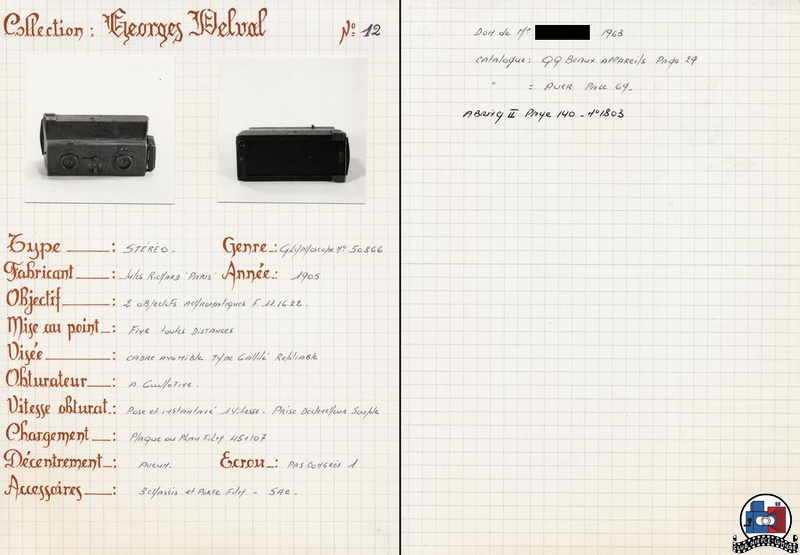 Collection : Georges Delval N° 12
Type : STÉRÉO.
Genre : Glyphoscope N° 50866
Fabricant : Jules RICHARD PARIS
Année : 1905
Objectif : 2 OBJECTIFS ACHROMATIQUES F. 11.16.22.
Mise au point : FIXE toutes DISTANCES
Visée : CADRE
TYPE Galilé Repliable
Obturateur : A Guillotine.
Vitesse obturat. : Pose et instantané 1 Vitesse. Prise Declencheur Souple
Chargement : Plaque ou Plan Film 45x107
Décentrement : AUCUN.
Ecrou : PAS CONGRÈS 1
Accessoires : 3 chassis et PORTE Film - SAC.
Don de Mr 1963
CATALOGUE : QQ BEAUX APPAREILS Page 29
" = AUER Page 69.
ABRING II Page 140 - N° 1803